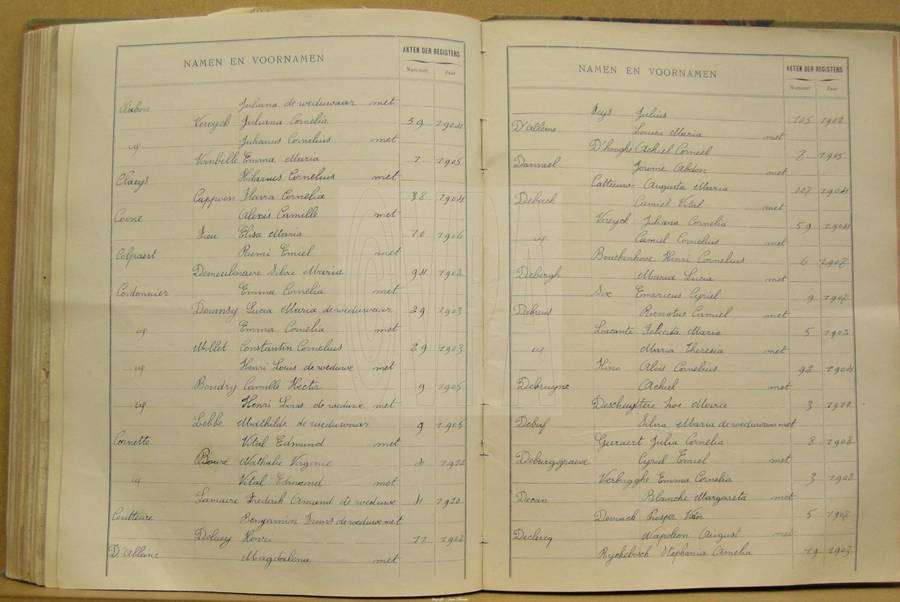 NAMEN EN VOORNAMEN
AKTEN DER REGISTERS
Nummer Jaar
Juliana de weduwaar met
Vereyck Juliana Cornelia 59 1904
id Julianus Cornelius met
Vanbelle Emma Maria 7 1905
Claeys Hilarius Cornelius met
Cappoen Flavia Cornelia 38 1904
Coene Alexis Camille met
Elisa Maria 10 1906
Colpaert Remi Emiel met
Demeulenaere Silvie Maria 94 1902
Cordonnier Emma Cornelia met
Lucia Maria de weduwaar 39 1903
id Emma Cornelia met
Mollet Constantin Cornelius 29 1903
id Henri Louis de weduwe met
Boudry Camille Hector 9 1905
id Henri Louis de weduwe met
Lebbe Mathilde de weduwaar 9 1905
Cornette Vital Edmund met
Bouré Nathalie Virginie 1912
id Vital Edmond met
Lamaire Frederik Armand de weduwe 11 1910
Coutteure Benjamin de weduwe met
Delaey Henri 11 1902
D'Alleine Magdalena met
NAMEN EN VOORNAMEN
AKTEN DER REGISTERS
Nummer Jaar
Seys Julius 105 1902
D'Alleine Louisa Maria met
D'hooghe Achiel Corneel 7 1905
Danneel Jerome Abdon met
Catteeuw Augusta Maria 107 1904
Deback Camiel Vital met
Vereyck Juliana Cornelia 59 1904
id Camiel Cornelius met
Bouckenhove Henri Cornelius 6 1907
Debergh Maria Lucia met
Six Emericus Cyriel 9 1907
Debruis Renatus Camiel met
Lacante Felicita Marie 5 1902
id Maria Theresia met
Kino Aloïs Cornelius 92 1904
Debruyne Achiel met
Deschuyttere Zoe Marie 3 1910
Debuf Silvia Maria de weduwaar met
Geeraert Julia Cornelia 8 1908
Deburggraeve Cyriel Emiel met
Verbrigghe Emma Cornelia 3 1902
Decan Blanche Margareta met
Devinck Prosper 5 1907
Declercq Napoleon August met
Ryckebosch Stephania Amelia 19 1903